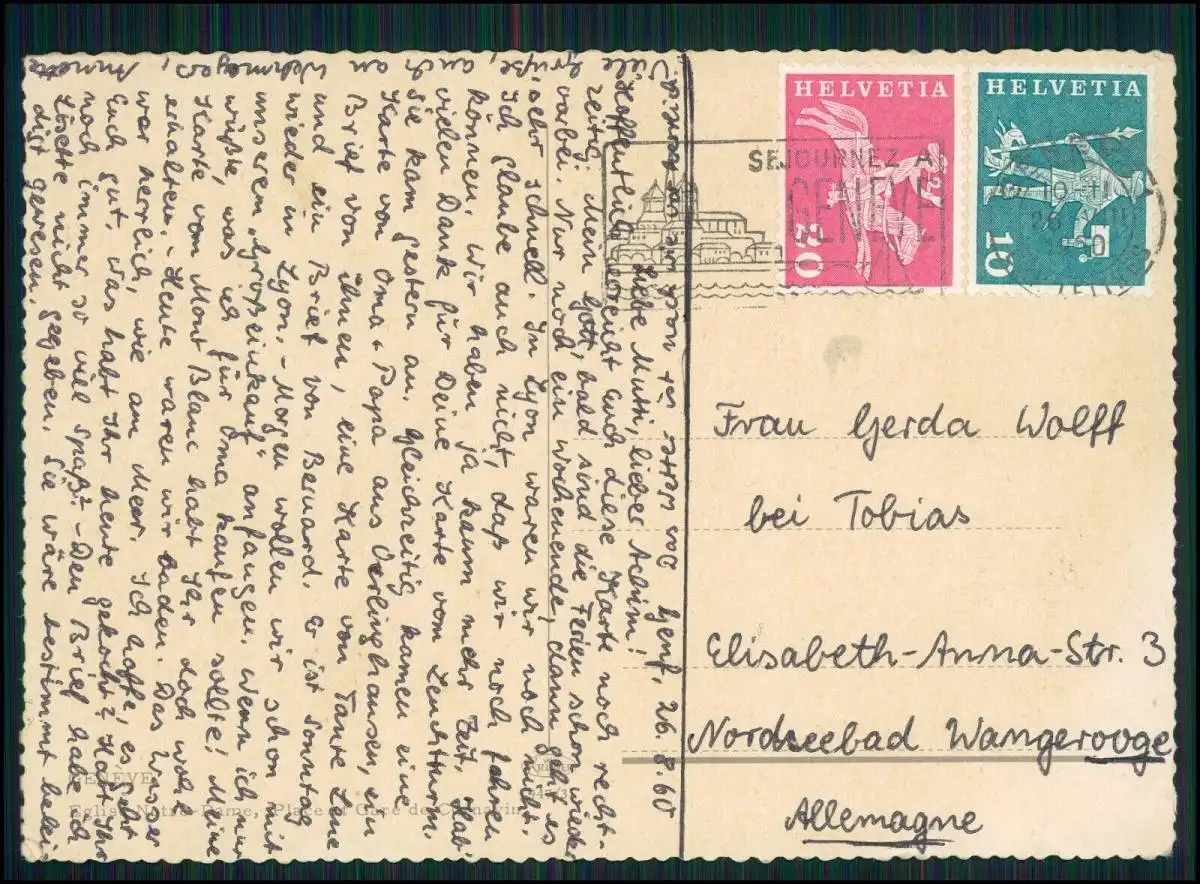 HELVETIA
80
HELVETIA
10
SEJOURNEZ A
GENEVE
Genf, 26.8.60
Das Wetter ist nach wie vor
Liebe Mutti, lieber Achim!
Hoffentlich erreicht Euch diese Karte noch recht-
zeitig. Mein Gott, bald sind die Ferien schon wieder
vorbei. Nur noch ein Wochenende, dann geht es
sehr schnell. In Lyon waren wir noch nicht.
Ich glaube auch nicht, daß wir noch fahren
können. Wir haben ja kaum mehr Zeit. Hab'
vielen Dank für Deine Karte vom Leuchtturm.
Sie kam gestern an. Gleichzeitig kamen eine
Karte von Oma + Papa aus Oerlinghausen, ein
Brief von Ihnen, eine Karte von Tante Lene
und ein Brief von Bernard. Er ist Sonntag
wieder in Lyon. - Morgen wollen wir schon mit
unserem „Großeinkauf“ anfangen. Wenn ich nur
wüßte, was ich für Oma kaufen sollte! Meine
Karte vom Mont Blanc habt Ihr doch wohl
erhalten. - Heute waren wir baden. Das Wasser
war herrlich, wie am Meer. Ich hoffe, es geht
Euch gut. Was habt Ihr heute gekocht? Habt Ihr
noch immer so viel Spaß? - Den Brief habe ich
Lisette nicht gegeben. Sie wäre bestimmt belei-
digt gewesen.
Viele Grüße, auch an Wehrmeyers, Annette
Frau Gerda Wolff
bei Tobias
Elisabeth-Anna-Str. 3
Nordseebad Wangerooge
Allemagne
GENEVE
Eglise Notre-Dame, Place et Gare de Cornavin